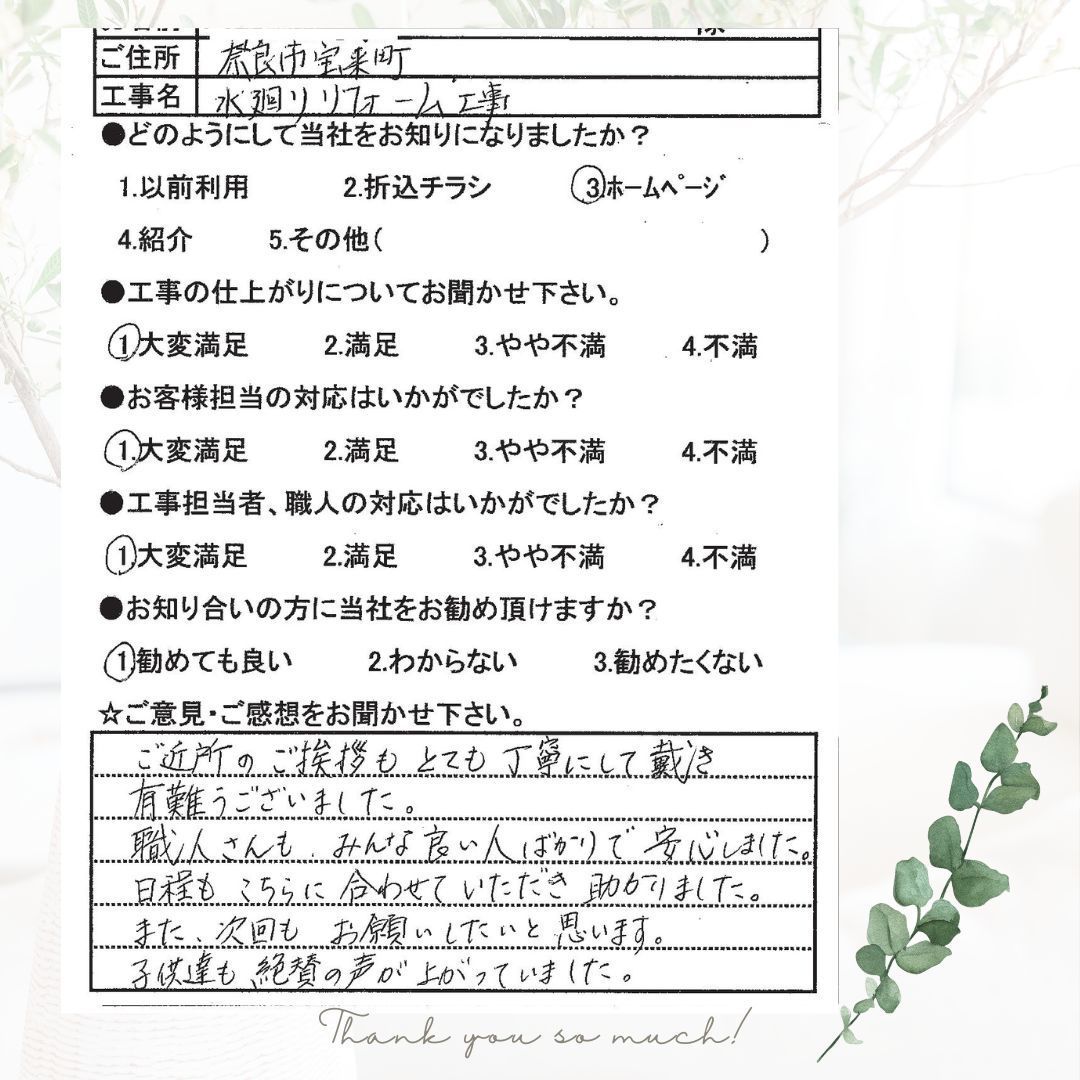 ご住所 奈良市宝来町
工事名 水廻りリフォーム工事
●どのようにして当社をお知りになりましたか？
1.以前利用 2.折込チラシ 3ホームページ
4.紹介 5.その他( )
●工事の仕上がりについてお聞かせ下さい。
1大変満足 2.満足 3.やや不満 4.不満
●お客様担当の対応はいかがでしたか？
1.大変満足 2.満足 3.やや不満 4.不満
●工事担当者、職人の対応はいかがでしたか？
1大変満足 2.満足 3.やや不満 4.不満
●お知り合いの方に当社をお勧め頂けますか？
1勧めても良い 2.わからない 3.勧めたくない
☆ご意見・ご感想をお聞かせ下さい。
ご近所のご挨拶もとても丁寧にして戴き
有難うございました。
職人さんも、みんな良い人ばかりで安心しました。
日程もこちらに合わせていただき助かりました。
また、次回もお願いしたいと思います。
子供達も絶賛の声が上がっていました。
Thank you so much!